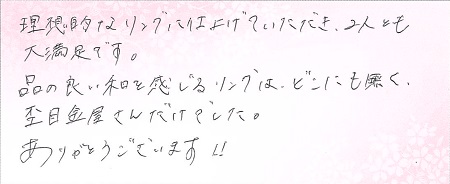 理想的なリングに仕上げていただき、2人とも
大満足です。
品の良い和を感じるリングは、どこにも無く、
杢目金屋さんだけでした。
ありがとうございます!!